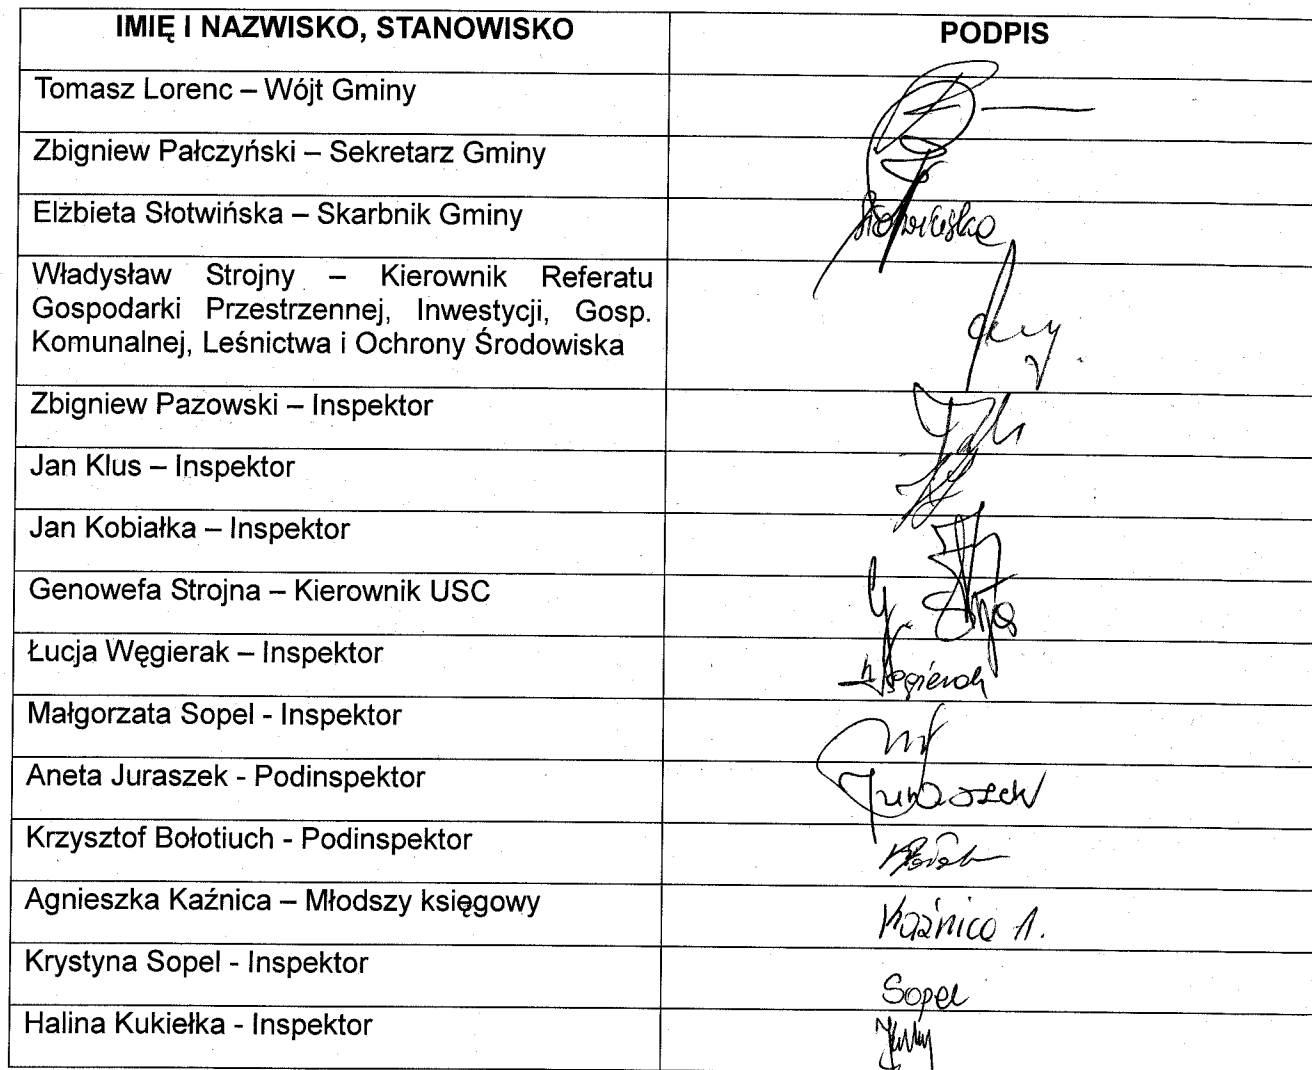 IMIĘ I NAZWISKO, STANOWISKO PODPIS
Tomasz Lorenc – Wójt Gminy
Zbigniew Pałczyński – Sekretarz Gminy
Elżbieta Słotwińska – Skarbnik Gminy Słotwińska
Władysław Strojny – Kierownik Referatu
Gospodarki Przestrzennej, Inwestycji, Gosp.
Komunalnej, Leśnictwa i Ochrony Środowiska
Zbigniew Pazowski – Inspektor
Jan Klus – Inspektor
Jan Kobiałka – Inspektor
Genowefa Strojna – Kierownik USC
Łucja Węgierak – Inspektor Węgierak
Małgorzata Sopel - Inspektor
Aneta Juraszek - Podinspektor Juraszek
Krzysztof Bołotiuch - Podinspektor
Agnieszka Kaźnica – Młodszy księgowy Kaźnica A.
Krystyna Sopel - Inspektor Sopel
Halina Kukiełka - Inspektor